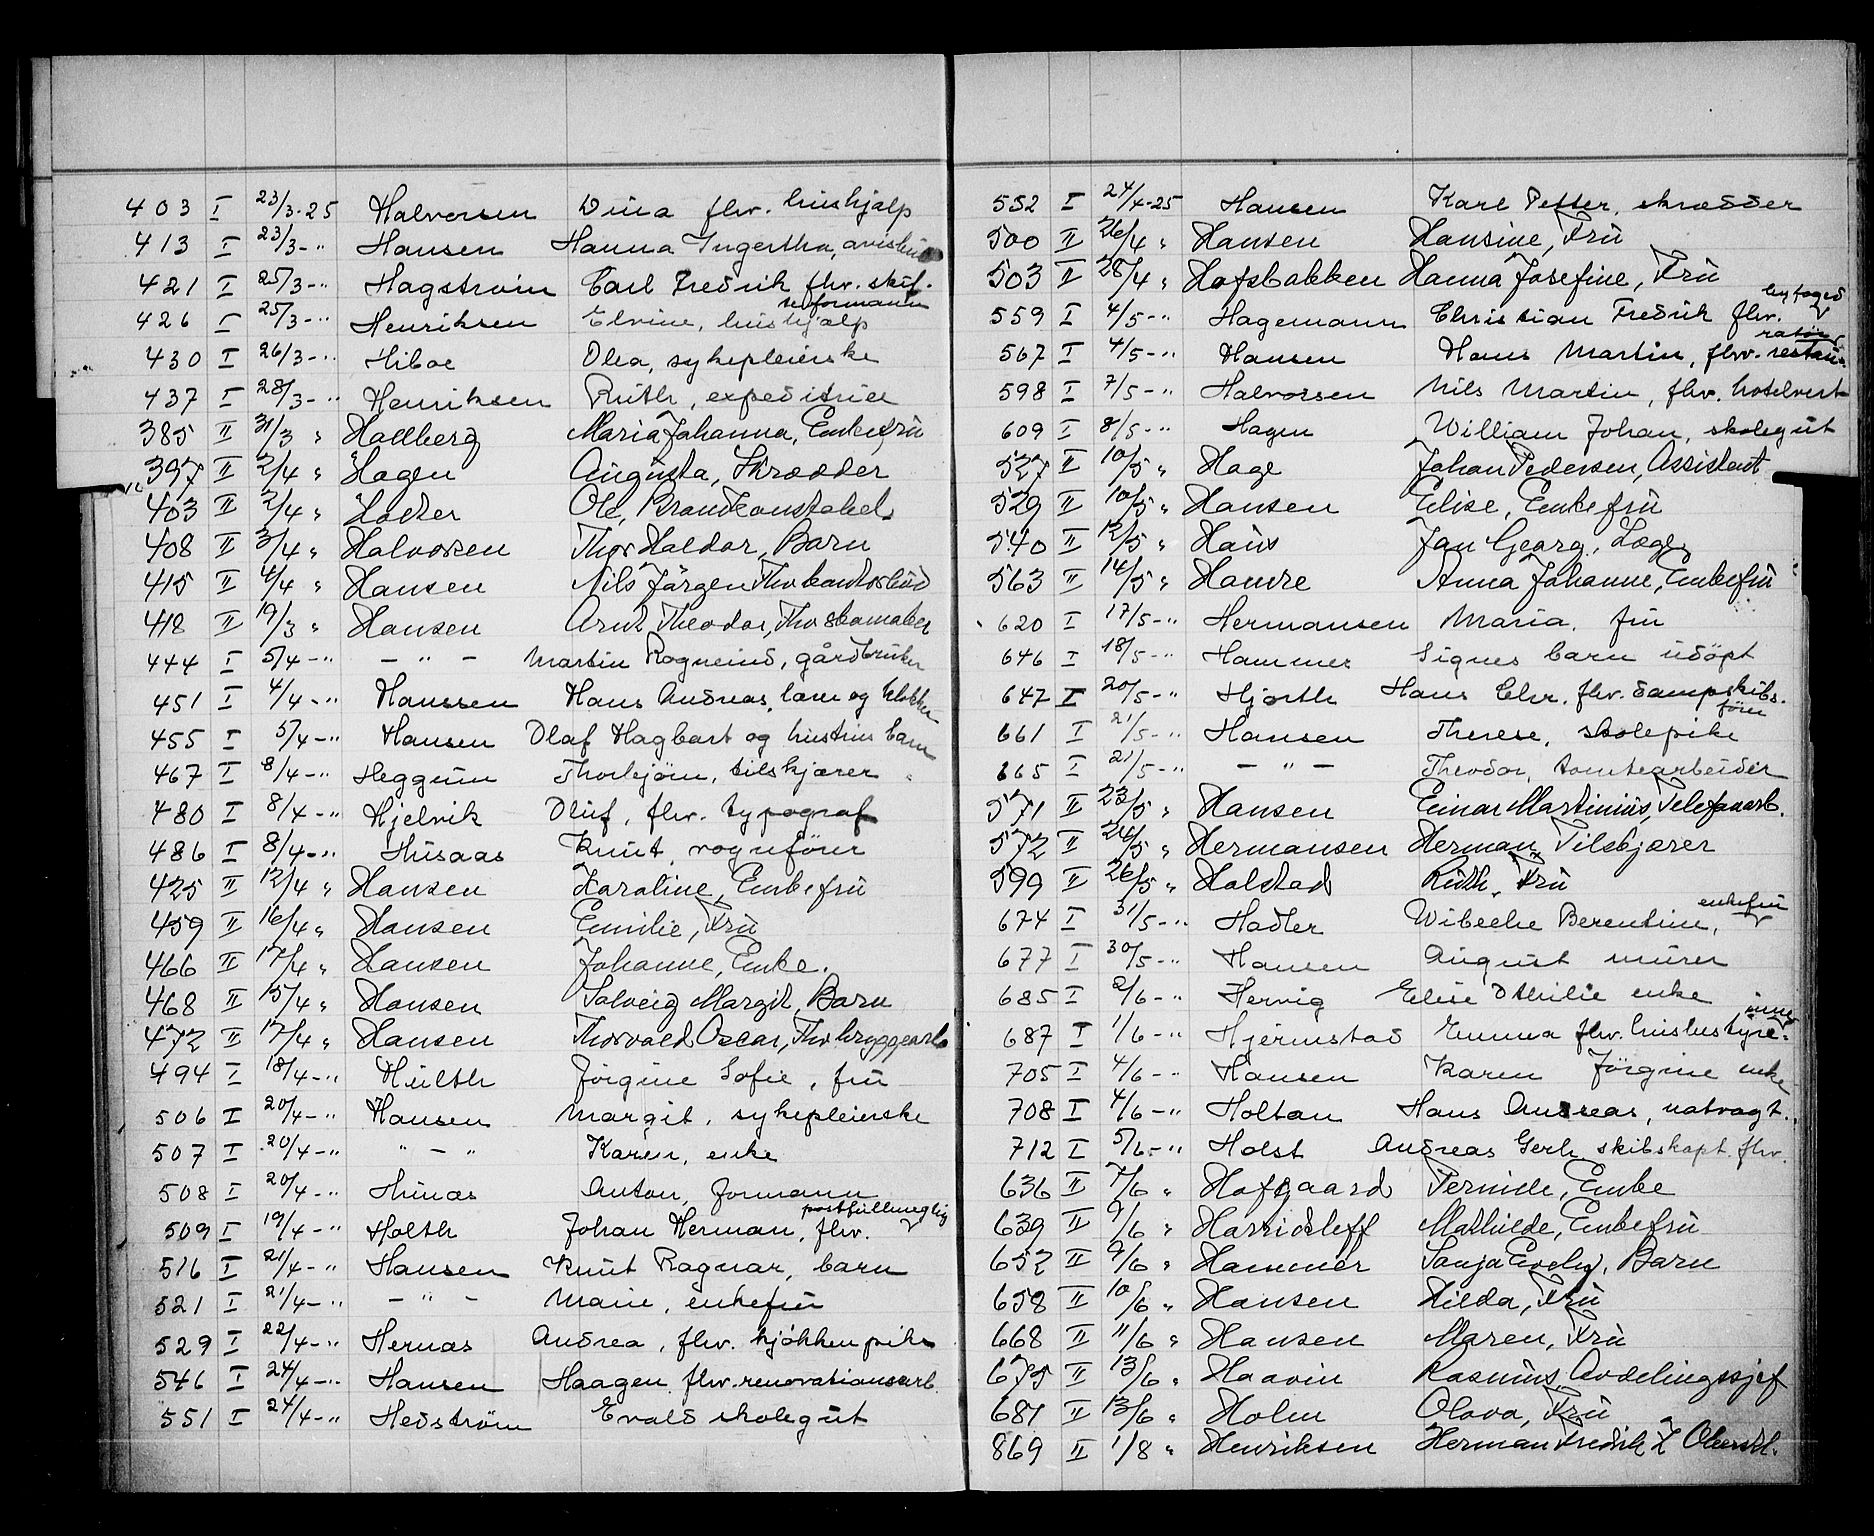 403 I 23/3-25 Halvorsen Dina flv. hushjalp
413 I 23/3-" Hansen Hanna Ingertha,
421 I 25/3-" Hagstrøm Carl Fredrik flv. skif-
teformann
426 I 25/3-" Henriksen Elvine, hushjalp
430 I 26/3-" Hiboe Olea, sykepleierske
437 I 28/3-" Henriksen Ruth, expeditrice
385 II 31/3 " Hallberg Maria Johanna, Enkefru
397 II 2/4 " Hagen Augusta, Skrædder
403 II 2/4 " Ole, Brandkonstabel
408 II 3/4 " Halvorsen Thor Haldor, Barn
415 II 4/4 " Hansen Nils Jörgen Fhv kontorbud
418 II 19/3 " Hansen Arnt Theodor, Fhv skomaker
444 I 5/4-" - " - Martin Rogneind, gårdbruker
451 I 4/4-" Hanssen Hans Andreas, lærer og klokker
455 I 5/4-" Hansen Olaf Hagbart og hustrus barn
467 I 8/4-" Heggum Thorbjörn, tilskjærer
480 I 8/4-" Hjelvik Oluf, flv. typograf
486 I 8/4-" Husaas Knut, vognförer
425 II 12/4 " Hansen Karoline, Enkefru
459 II 16/4 " Hansen Emilie, Fru
466 II 17/4 " Hansen Johanne, Enke.
468 II 15/4 " Hansen Solveig Margit, Barn
472 II 17/4 " Hansen Thorvald Oscar, Fhv bryggearb
494 I 18/4-" Hulth Jörgine Sofie, fru
506 I 20/4-" Hansen Margit, sykepleierske
507 I 20/4-" " - " Karen, enke
508 I 20/4-" Hunæs Anton, formann
509 I 19/4-" Holth Johan Herman, flv.
postfullmegtig
516 I 21/4-" Hansen Knut Ragnar, barn
521 I 21/4-" - " - Marie, enkefru
529 I 22/4-" Hernæs Andrea, flv. kjökkenpike
546 I 24/4-" Hansen Haagen flv. renovationsarb.
551 I 24/4-" Hedström Evald skolegut
552 I 24/4-25 Hansen Karl Petter, skrædder
500 II 26/4 " Hansen Hansine, Fru
503 II 28/4 " Hofsbakken Hanna Josefine, Fru
559 I 4/5-" Hagemann Christian Fredrik flv. byfoged
567 I 4/5-" Hansen Hans Martin, flv. restau-
ratör
598 I 7/5-" Halvorsen Nils Martin, flv. hotelvert
609 I 8/5-" Hagen William Johan, skolegut
527 II 10/5 " Hage Johan Pedersen, Assistent
529 II 10/5 " Hansen Elise, Enkefru
540 II 12/5 " Haus Jan Georg, Læge
563 II 14/5 " Hamre Anna Johanne, Enkefru
620 I 17/5-" Hermansen Maria, fru
646 I 18/5-" Hammer Signes barn udöpt
647 I 20/5-" Hjorth Hans Chr. flv. dampskibs-
förer
661 I 21/5-" Hansen Therese, skolepike
665 I 21/5-" - " - Theodor, tomtearbeider
571 II 23/5 " Hansen Einar Martinius, Telefonarb.
572 II 24/5 " Hermansen Herman, Tilskjærer
599 II 26/5 " Halstad Ruth, Fru
674 I 31/5-" Hadler Wibecke Berentine, enkefru
677 I 30/5-" Hansen August murer
685 I 2/6-" Hervig Elise Othilie enke
687 I 1/6-" Hjermstad Emma flv. husbestyre-
inne
705 I 4/6-" Hansen Karen Jörgine enke
708 I 4/6-" Holtan Hans Andreas, natvagt.
712 I 5/6-" Holst Andreas Gerh. skibskapt. flv.
636 II 7/6 " Hofgaard Pernille, Enke
639 II 9/6 " Harridsleff Mathilde, Enkefru
652 II 9/6 " Hammer Sonja Evely, Barn
658 II 10/6 " Hansen Hilda, Fru
668 II 11/6 " Hansen Maren, Fru
675 II 13/6 " Haavin Rasmus, Avdelingssjef
681 II 13/6 " Holm Olava, Fru
869 II 1/8 " Henriksen Herman Fredrik Z